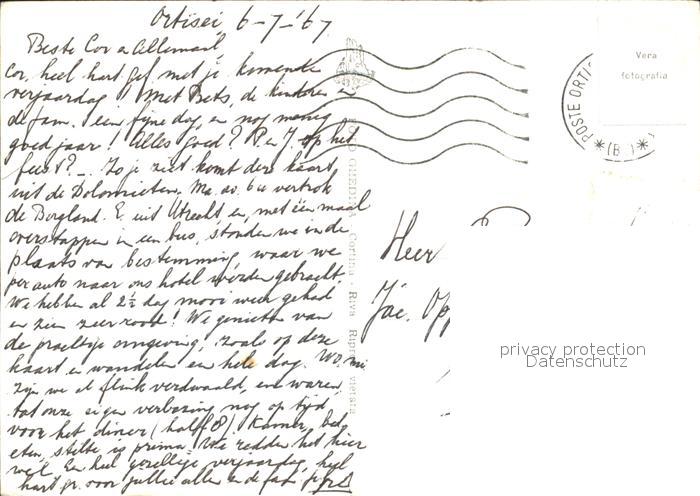 Ortisei 6-7-'67
Beste Cor en allemaal
Cor, heel hart. gef. met je komende
verjaardag! Met Bets, de kinderen en
de fam. een fijne dag en nog menig
goed jaar! Alles goed? P. en J. op het
feest? - Zo je ziet komt deze kaart
uit de Dolomieten. Ma. av. 6 u vertrok
de Bergland. E. uit Utrecht en, met één maal
overstappen in een bus, stonden we in de
plaats van bestemming, waar we
per auto naar ons hotel werden gebracht.
We hebben al 2½ dag mooi weer gehad
en zien zeer rood! We genieten van
de prachtige omgeving, zoals op deze
kaart en wandelen een hele dag. Wo. mi
zijn we al flink verdwaald, en waren
tot onze eigen verbazing nog op tijd
voor het diner (half 8). Kamer, bed,
eten, stilte is prima. We redden het hier
wel. Een heel gezellige verjaardag, heel
hart. gr. voor jullie allen en de fam.
GHEDINA - Cortina - Riva Ripr. vietata
Vera
fotografia
POSTE ORTI
*(B )*
Heer
Jac. Op
privacy protection
Datenschutz